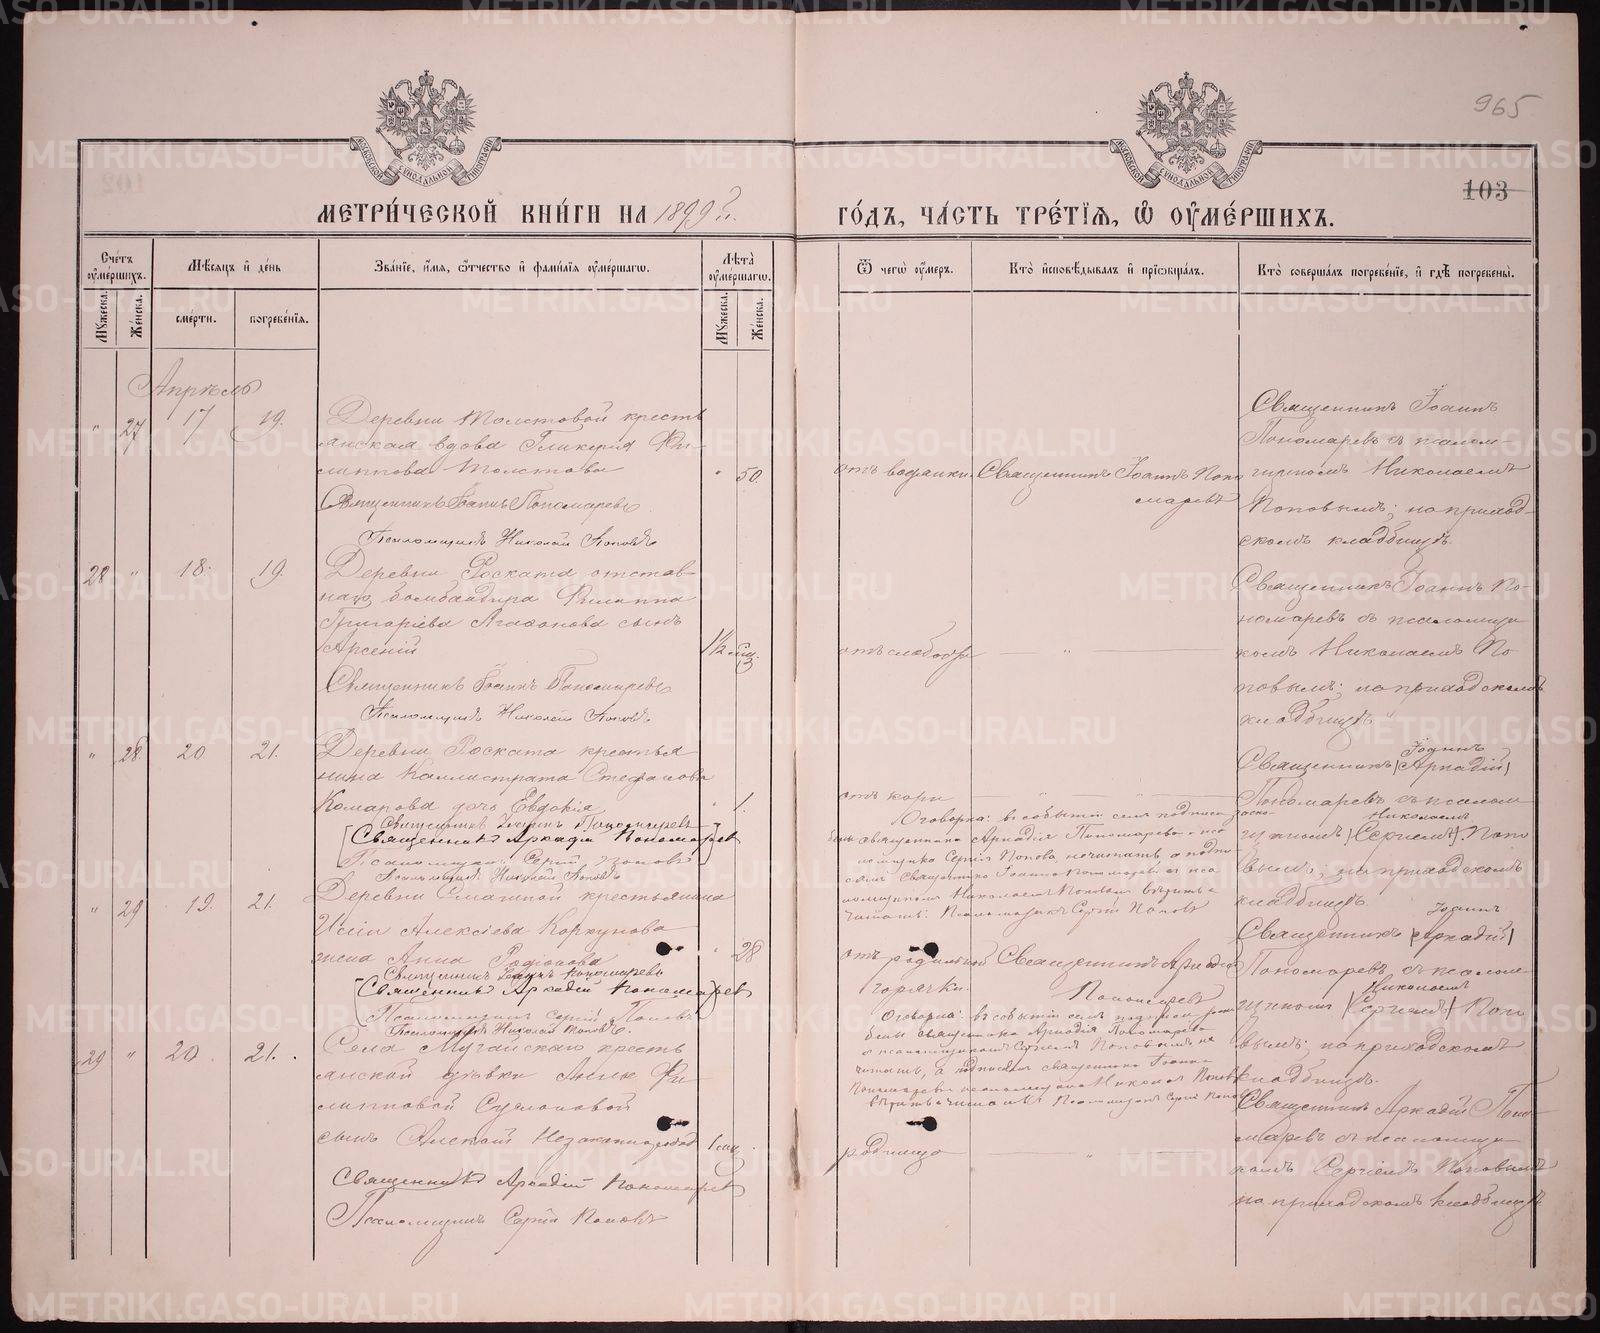 965
103
МЕТРИ́ЧЕСКОЙ КНИ́ГИ НА 1899 г.
ГО́ДЪ, ЧА́СТЬ ТРЕ́ТІѦ, Ѡ҆ ОУ҆МЕ́РШИХЪ.
Сче́тъ оу҆ме́ршихъ.
Мꙋ́жеска.
Же́нска.
Мѣ́сѧцъ и҆ де́нь
сме́рти.
погребе́нїѧ.
Зва́нїе, и҆́мѧ, ѻ҆́тчество и҆ фами́лїѧ оу҆ме́ршагѡ.
Лѣта̀ оу҆ме́ршагѡ.
Мꙋ́жеска.
Же́нска.
Ѿ чегѡ̀ оу҆́меръ.
Кто̀ и҆сповѣ́дывалъ и҆ прїѡбща́лъ.
Кто̀ соверша́лъ погребе́нїе, и҆ гдѣ̀ погребены̀.
Апрѣль
" 27 17 19.
Деревни Толстовой кресть
янская вдова Гликерія Фи-
липпова Толстова
" 50.
Священникъ Іоаннъ Пономаревъ
Псаломщикъ Николай Поповъ
отъ водянки.
Священникъ Іоаннъ Поно
маревъ
Священникъ Іоаннъ
Пономаревъ съ псалом-
щикомъ Николаемъ
Поповымъ; на приход-
скомъ кладбищѣ.
28 " 18. 19.
Деревни Роската отстав-
наго бомбардира Филиппа
Григоріева Агафонова сынъ
Арсеній
1½ мѣс.
Священникъ Іоаннъ Пономаревъ
Псаломщикъ Николай Поповъ
отъ слабости
Священникъ Іоаннъ По-
номаревъ съ псаломщи
комъ Николаемъ По
повымъ; на приходскомъ
кладбищѣ
" 28. 20 21.
Деревни Роската крестья
нина Каллистрата Стефанова
Комарова дочь Евдокія
" 1.
Священникъ Іоаннъ Пономаревъ
[Священникъ Аркадій Пономаревъ
Псаломщикъ Сергій Поповъ]
Псаломщикъ Николай Поповъ
отъ кори
Оговорка: въ событіи семъ подписи руко-
священника Аркадія Пономарева и пса
ломщика Сергія Попова не читать, а подпи-
священника Іоанна Пономарева и пса
ломщикомъ Николаемъ Поповымъ вѣрить и
читать: Псаломщикъ Сергій Поповъ
Іоаннъ
Священникъ [Аркадій]
Пономаревъ съ псалом
Николаемъ
щикомъ [Сергіемъ] Попо
вымъ; на приходскомъ
кладбищѣ.
" 29 19. 21.
Деревни Смагиной крестьянина
Иліи Алексіева Коркунова
жена Анна Родіонова
" 28
Священникъ Іоаннъ Пономаревъ
[Священникъ Аркадій Пономаревъ
Псаломщикъ Сергій Поповъ]
Псаломщикъ Николай Поповъ.
отъ родильной
горячки.
Священникъ Аркадій
Пономаревъ
Оговорка: въ событіи семъ подписи
священника Аркадія Пономарева
и псаломщикомъ Сергіемъ Поповымъ не
читать, а подписамъ священника Іоанна
Пономарева и псаломщика Николая Попова
вѣрить и читать Псаломщикъ Сергій Поповъ
Іоаннъ
Священникъ [Аркадій]
Пономаревъ съ псалом
Николаемъ
щикомъ [Сергіемъ] Попо
вымъ; на приходскомъ
кладбищѣ.
29 " 20. 21.
Села Мугайскаго кресть
янской дѣвки Анны Фи
липповой Суломовой
сынъ Алексій незаконнорожд
1 мѣс.
Священникъ Аркадій Пономаревъ
Псаломщикъ Сергій Поповъ
родимца
Священникъ Аркадій Поно-
маревъ съ псаломщи
комъ Сергіемъ Поповымъ
на приходскомъ кладбищѣ
METRIKI.GASO-URAL.RU